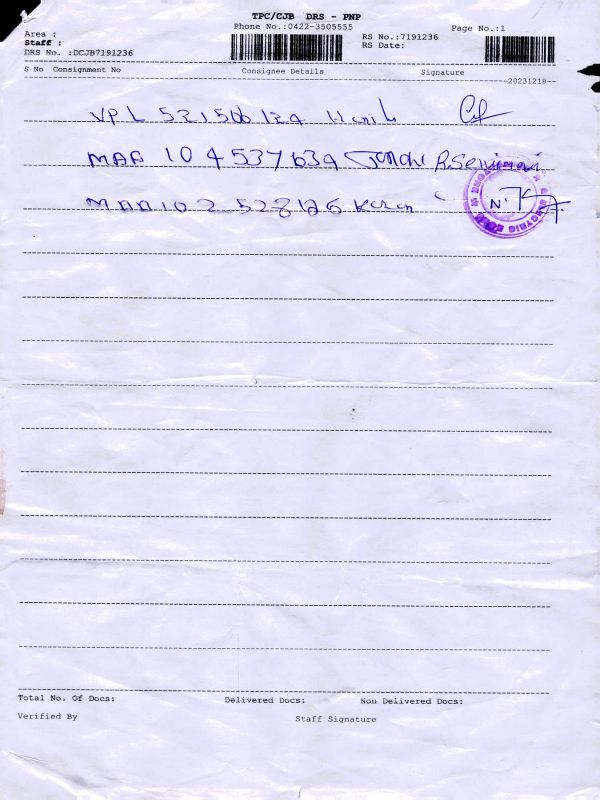 TPC/CJB DRS - PNP
Phone No.:0422-3505555
Page No.:1
Area :
RS No.:7191236
Staff :
RS Date:
DRS No. :DCJB7191236
S No Consignment No Consignee Details Signature
20231218
VPL 521506129
MAA 104537639
MAA 102 528126
Total No. Of Docs: Delivered Docs: Non Delivered Docs:
Verified By Staff Signature